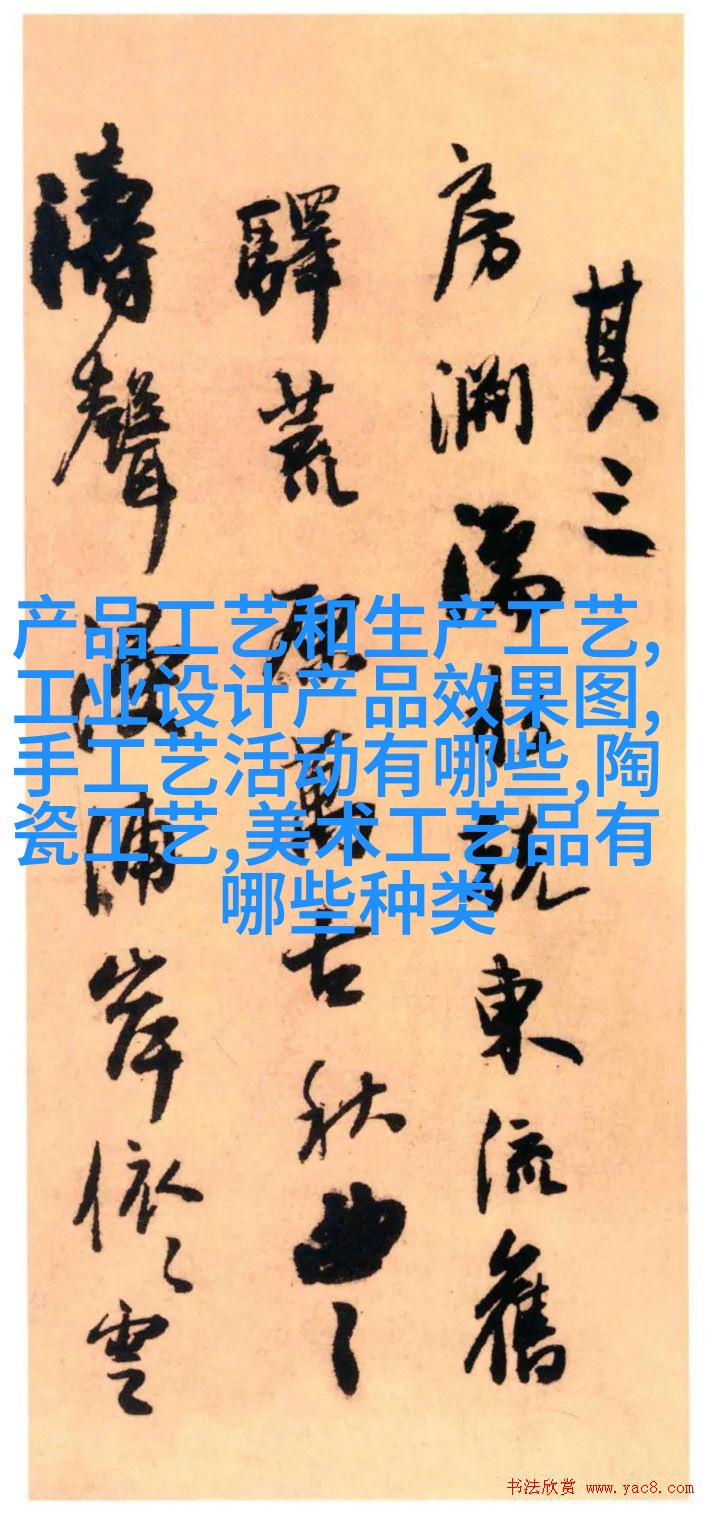 其三
房渊濡水说东流舊
驛荒歷萬古秋曲〻
濤聲漫浦岸依〻雲
产品工艺和生产工艺,
工业设计产品效果图,
手工艺活动有哪些,陶
瓷工艺,美术工艺品有
哪些种类
书法欣赏 www.yac8.com